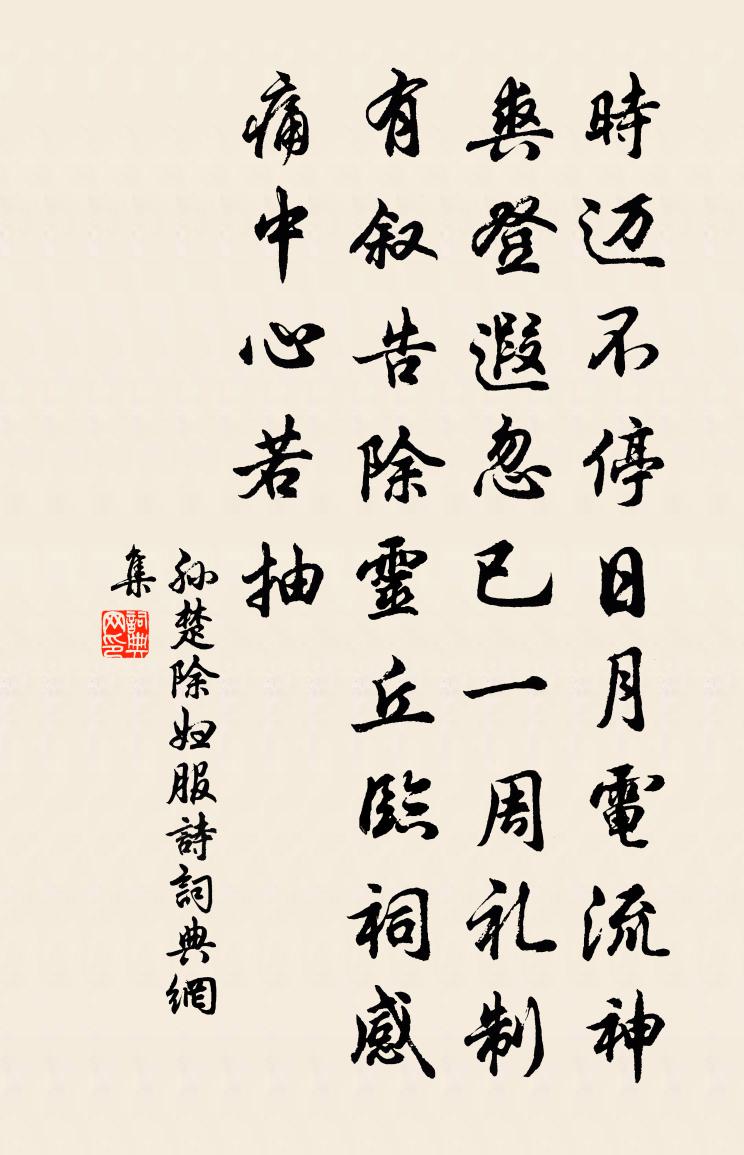 時迈不停日月電流神
爽登遐忽已一周礼制
有叙告除靈丘臨祠感
痛中心若抽
孙楚除妇服詩詞典網
集
詞典
网印